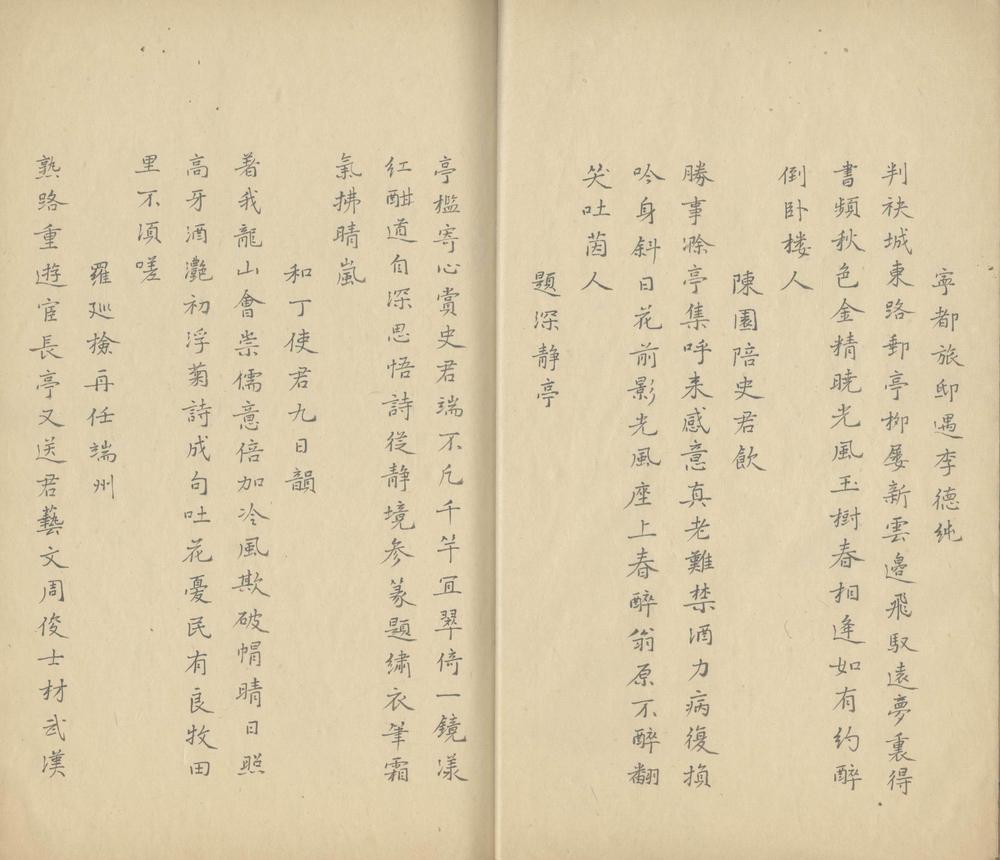 寧都旅邸遇李德純
判袂城東路郵亭柳屡新雲邉飛馭遠夢裏得
書頻秋色金精暁光風玉樹春相逢如有約醉
倒卧楼人
陳園陪史君飲
勝事滁亭集呼来感意真老難禁酒力病復損
吟身斜日花前影光風座上春醉翁原不醉翻
笑吐茵人
題深静亭
亭檻寄心賞史君端不凡千竿宜翠倚一鏡漾
紅酣道自深思悟詩從静境参篆題繡衣筆霜
氣拂晴嵐
和丁使君九日韻
著我龍山會崇儒意倍加冷風欺破帽晴日照
高牙酒灔初浮菊詩成句吐花憂民有良牧田
里不湏嗟
羅廵撿再任端州
熟路重遊宦長亭又送君藝文周俊士材武漢